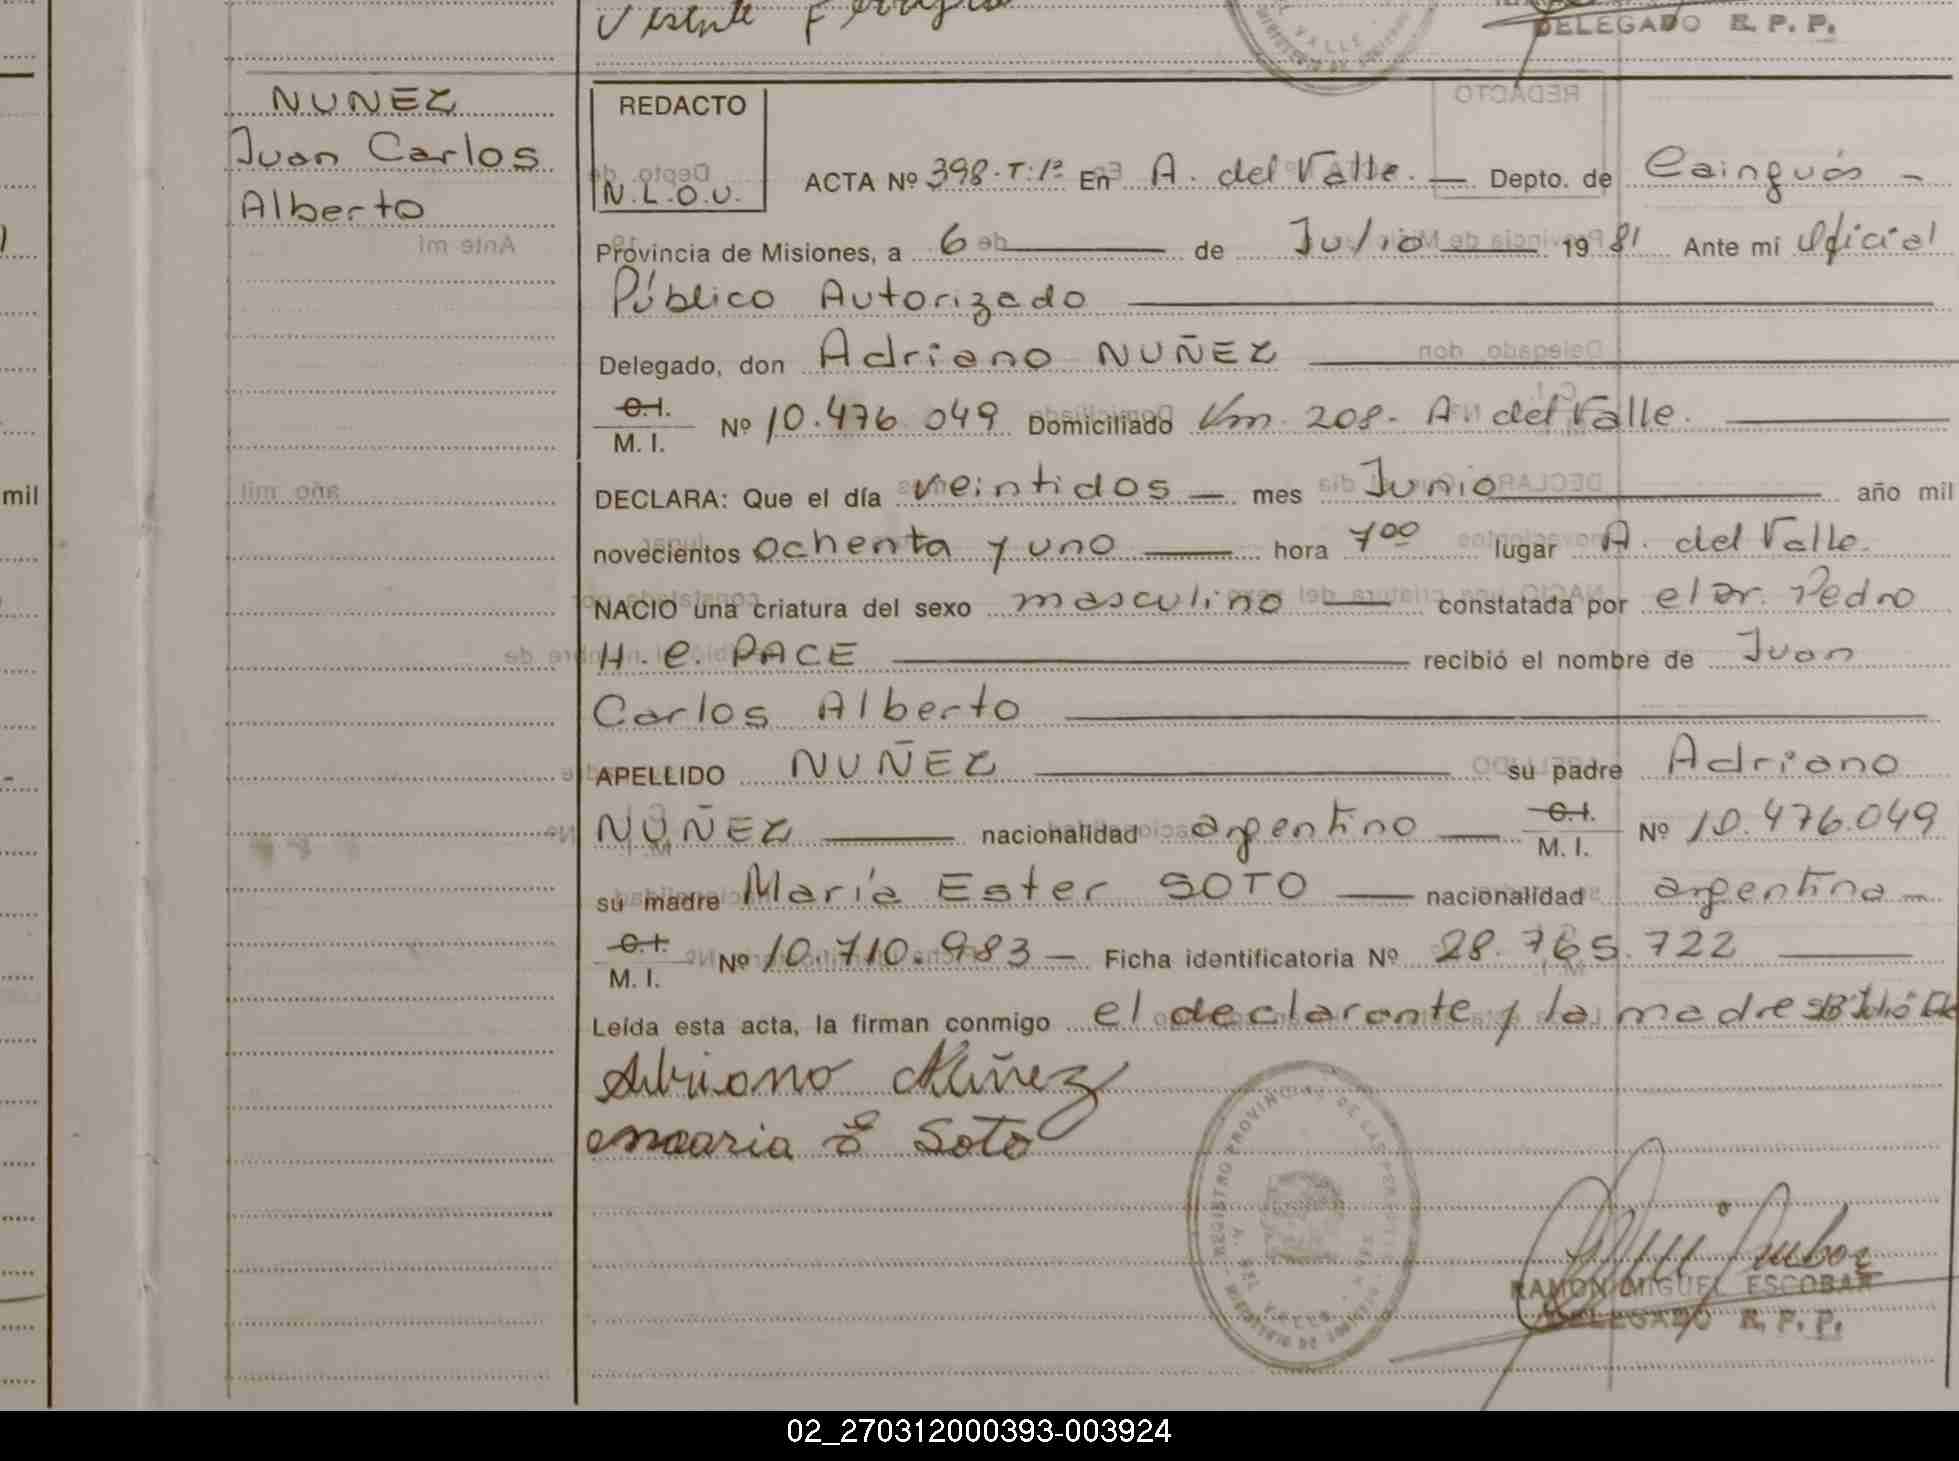 DELEGADO R. P. P.
NUNEZ
Juan Carlos
Alberto
REDACTO
N.L.O.U.
ACTA Nº 398-T:1º En A. del Valle. — Depto. de Cainguás -
Provincia de Misiones, a 6 — de Julio — 1981 Ante mi Oficial
Público Autorizado —
Delegado, don Adriano NUÑEZ —
C.I. M. I. Nº 10.476.049 Domiciliado Km. 208- A. del Valle. —
DECLARA: Que el día veintidos — mes Junio — año mil
novecientos ochenta y uno — hora 7 00 lugar A. del Valle.
NACIO una criatura del sexo masculino — constatada por el Dr. Pedro
H. C. PACE — recibió el nombre de Juan
Carlos Alberto —
APELLIDO NUÑEZ — su padre Adriano
NUÑEZ — nacionalidad argentino — C.I. M. I. Nº 10.476.049
su madre María Ester SOTO — nacionalidad argentina -
C.I. M. I. Nº 10.710.983 — Ficha identificatoria Nº 28.765.722 —
Leída esta acta, la firman conmigo el declarante y la madre
Adriano Núñez
maria E Soto
REGISTRO PROVINCIAL DE LAS PERSONAS
A. DEL VALLE
RAMON MIGUEL ESCOBAR
DELEGADO R. P. P.
mil
02_270312000393-003924